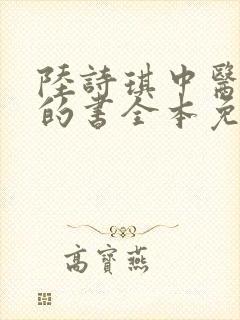 陸詩琪中醫
的書全本免
高寶燕